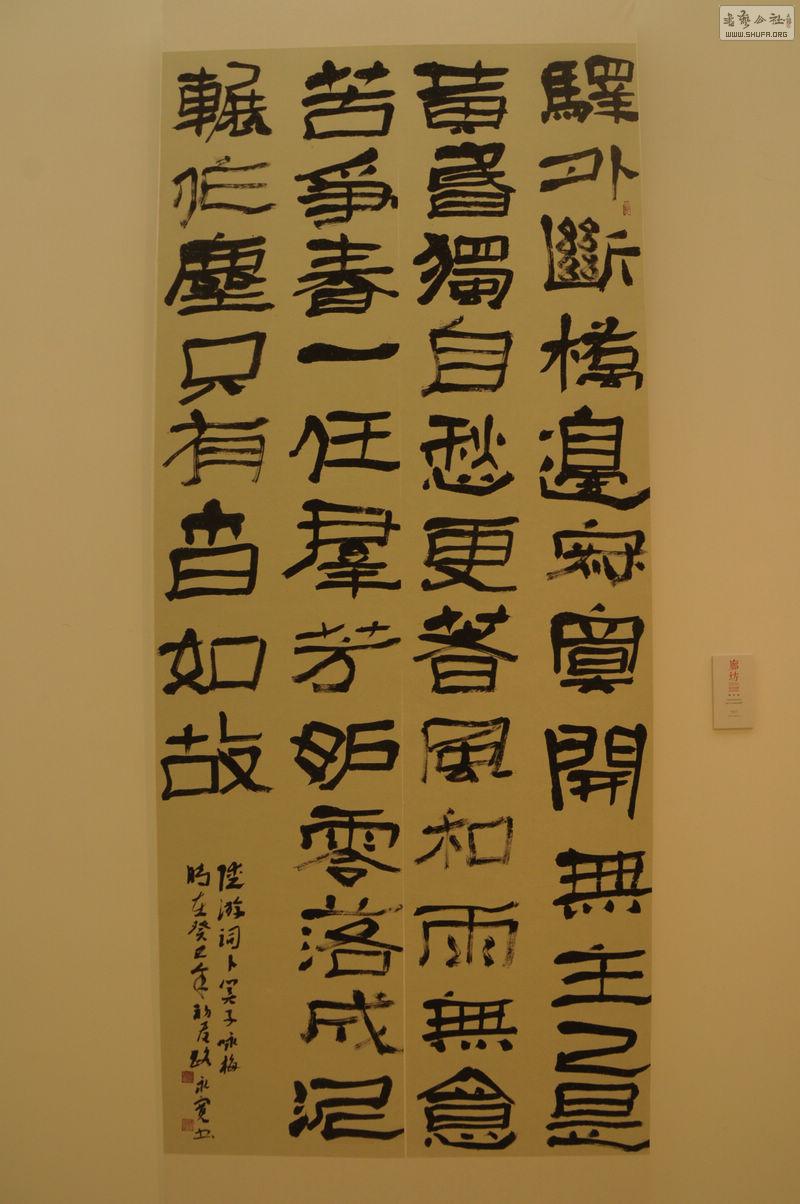 驛外斷橋邊寂寞開無主已是
黄昬獨自愁更著風和雨無意
苦爭春一任羣芳妒零落成泥
輾作塵只有香如故
陸游詞卜筭子咏梅
時在癸巳年初夏路永寬书
廊坊
書藝公社
WWW.SHUFA.ORG